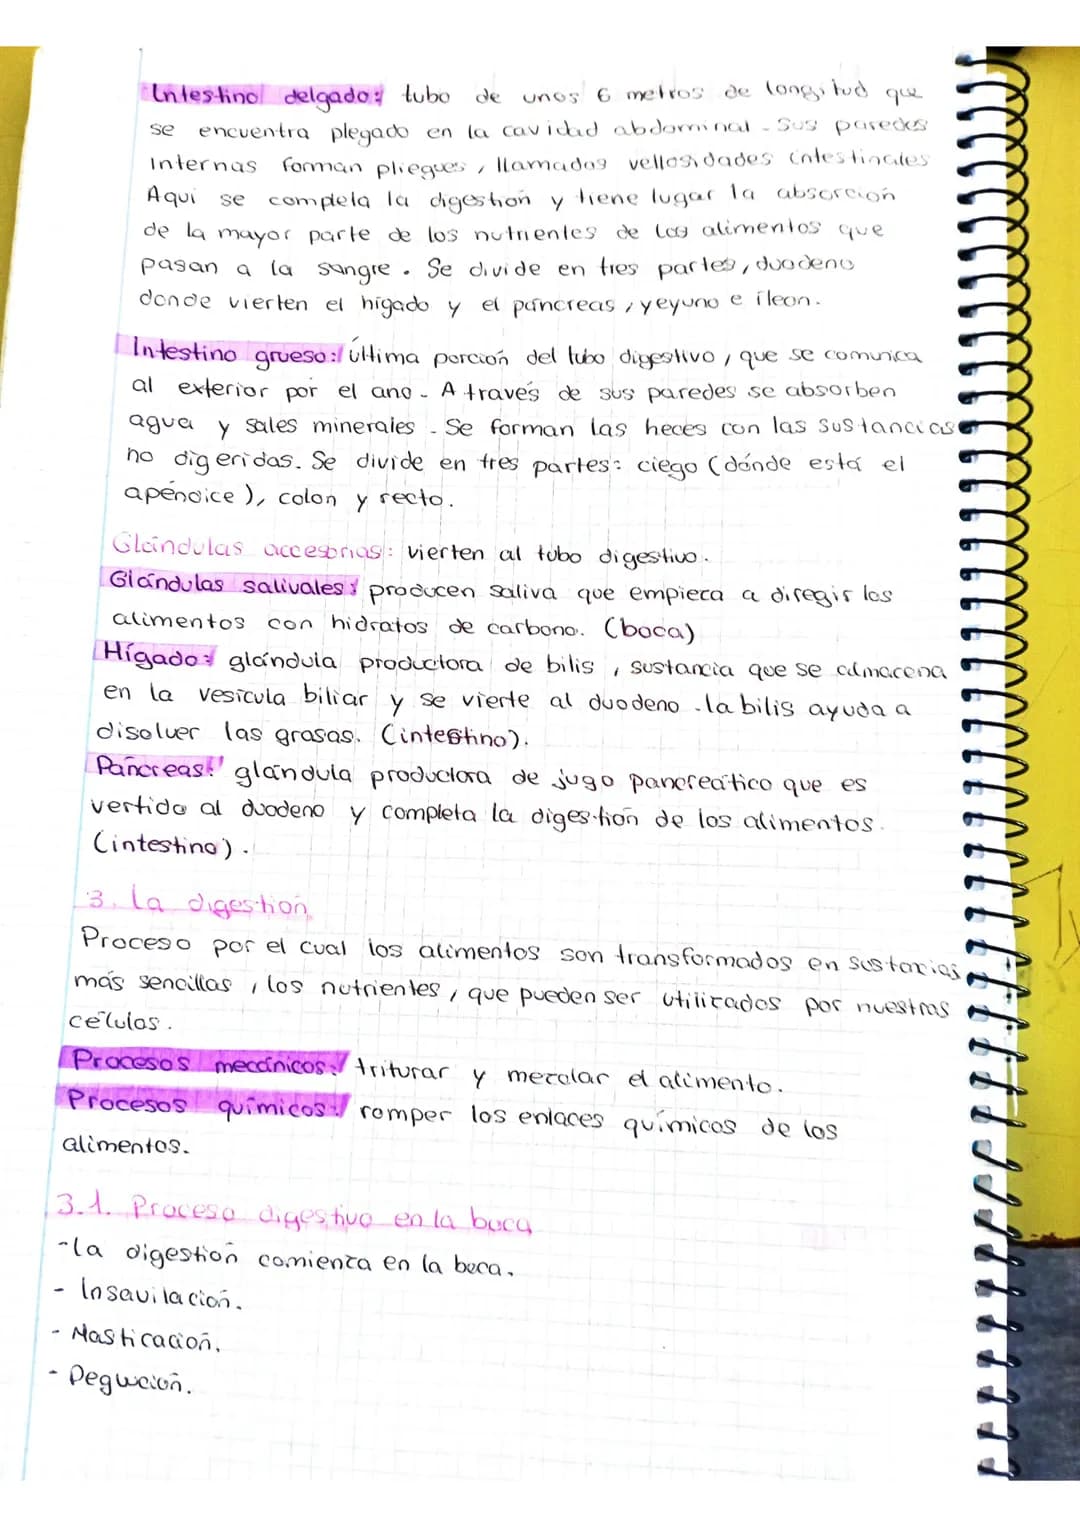 Intestino delgado: tubo de unos 6 metros de longitud que
se encuentra plegado en la cavidad abdominal. Sus paredes
internas forman pliegues, llamadas vellosidades intestinales
Aquí se completa la digestión y tiene lugar la absorción
de la mayor parte de los nutrientes de los alimentos que
pasan a la sangre. Se divide en tres partes, duodeno
donde vierten el hígado y el páncreas, yeyuno e íleon.
Intestino grueso: última porción del tubo digestivo, que se comunica
al exterior por el ano. A través de sus paredes se absorben
agua y sales minerales. Se forman las heces con las sustancias
no digeridas. Se divide en tres partes: ciego (dónde está el
apéndice), colon y recto.
Glándulas accesorias: vierten al tubo digestivo.
Glándulas salivales: producen saliva que empieza a diregir los
alimentos con hidratos de carbono. (boca)
Hígado: glándula productora de bilis, sustancia que se almacena
en la vesícula biliar y se vierte al duodeno. la bilis ayuda a
disolver las grasas. (intestino).
Páncreas: glándula productora de jugo pancreático que es
vertido al duodeno y completa la digestión de los alimentos.
(intestino).
3. La digestión
Proceso por el cual los alimentos son transformados en sustancias
más sencillas, los nutrientes, que pueden ser utilizados por nuestras
células.
Procesos mecánicos: triturar y mezclar el alimento.
Procesos químicos: romper los enlaces químicos de los
alimentos.
3.1. Proceso digestivo en la boca
-la digestión comienza en la boca.
- Insavilación.
- Masticación.
- Deglución.